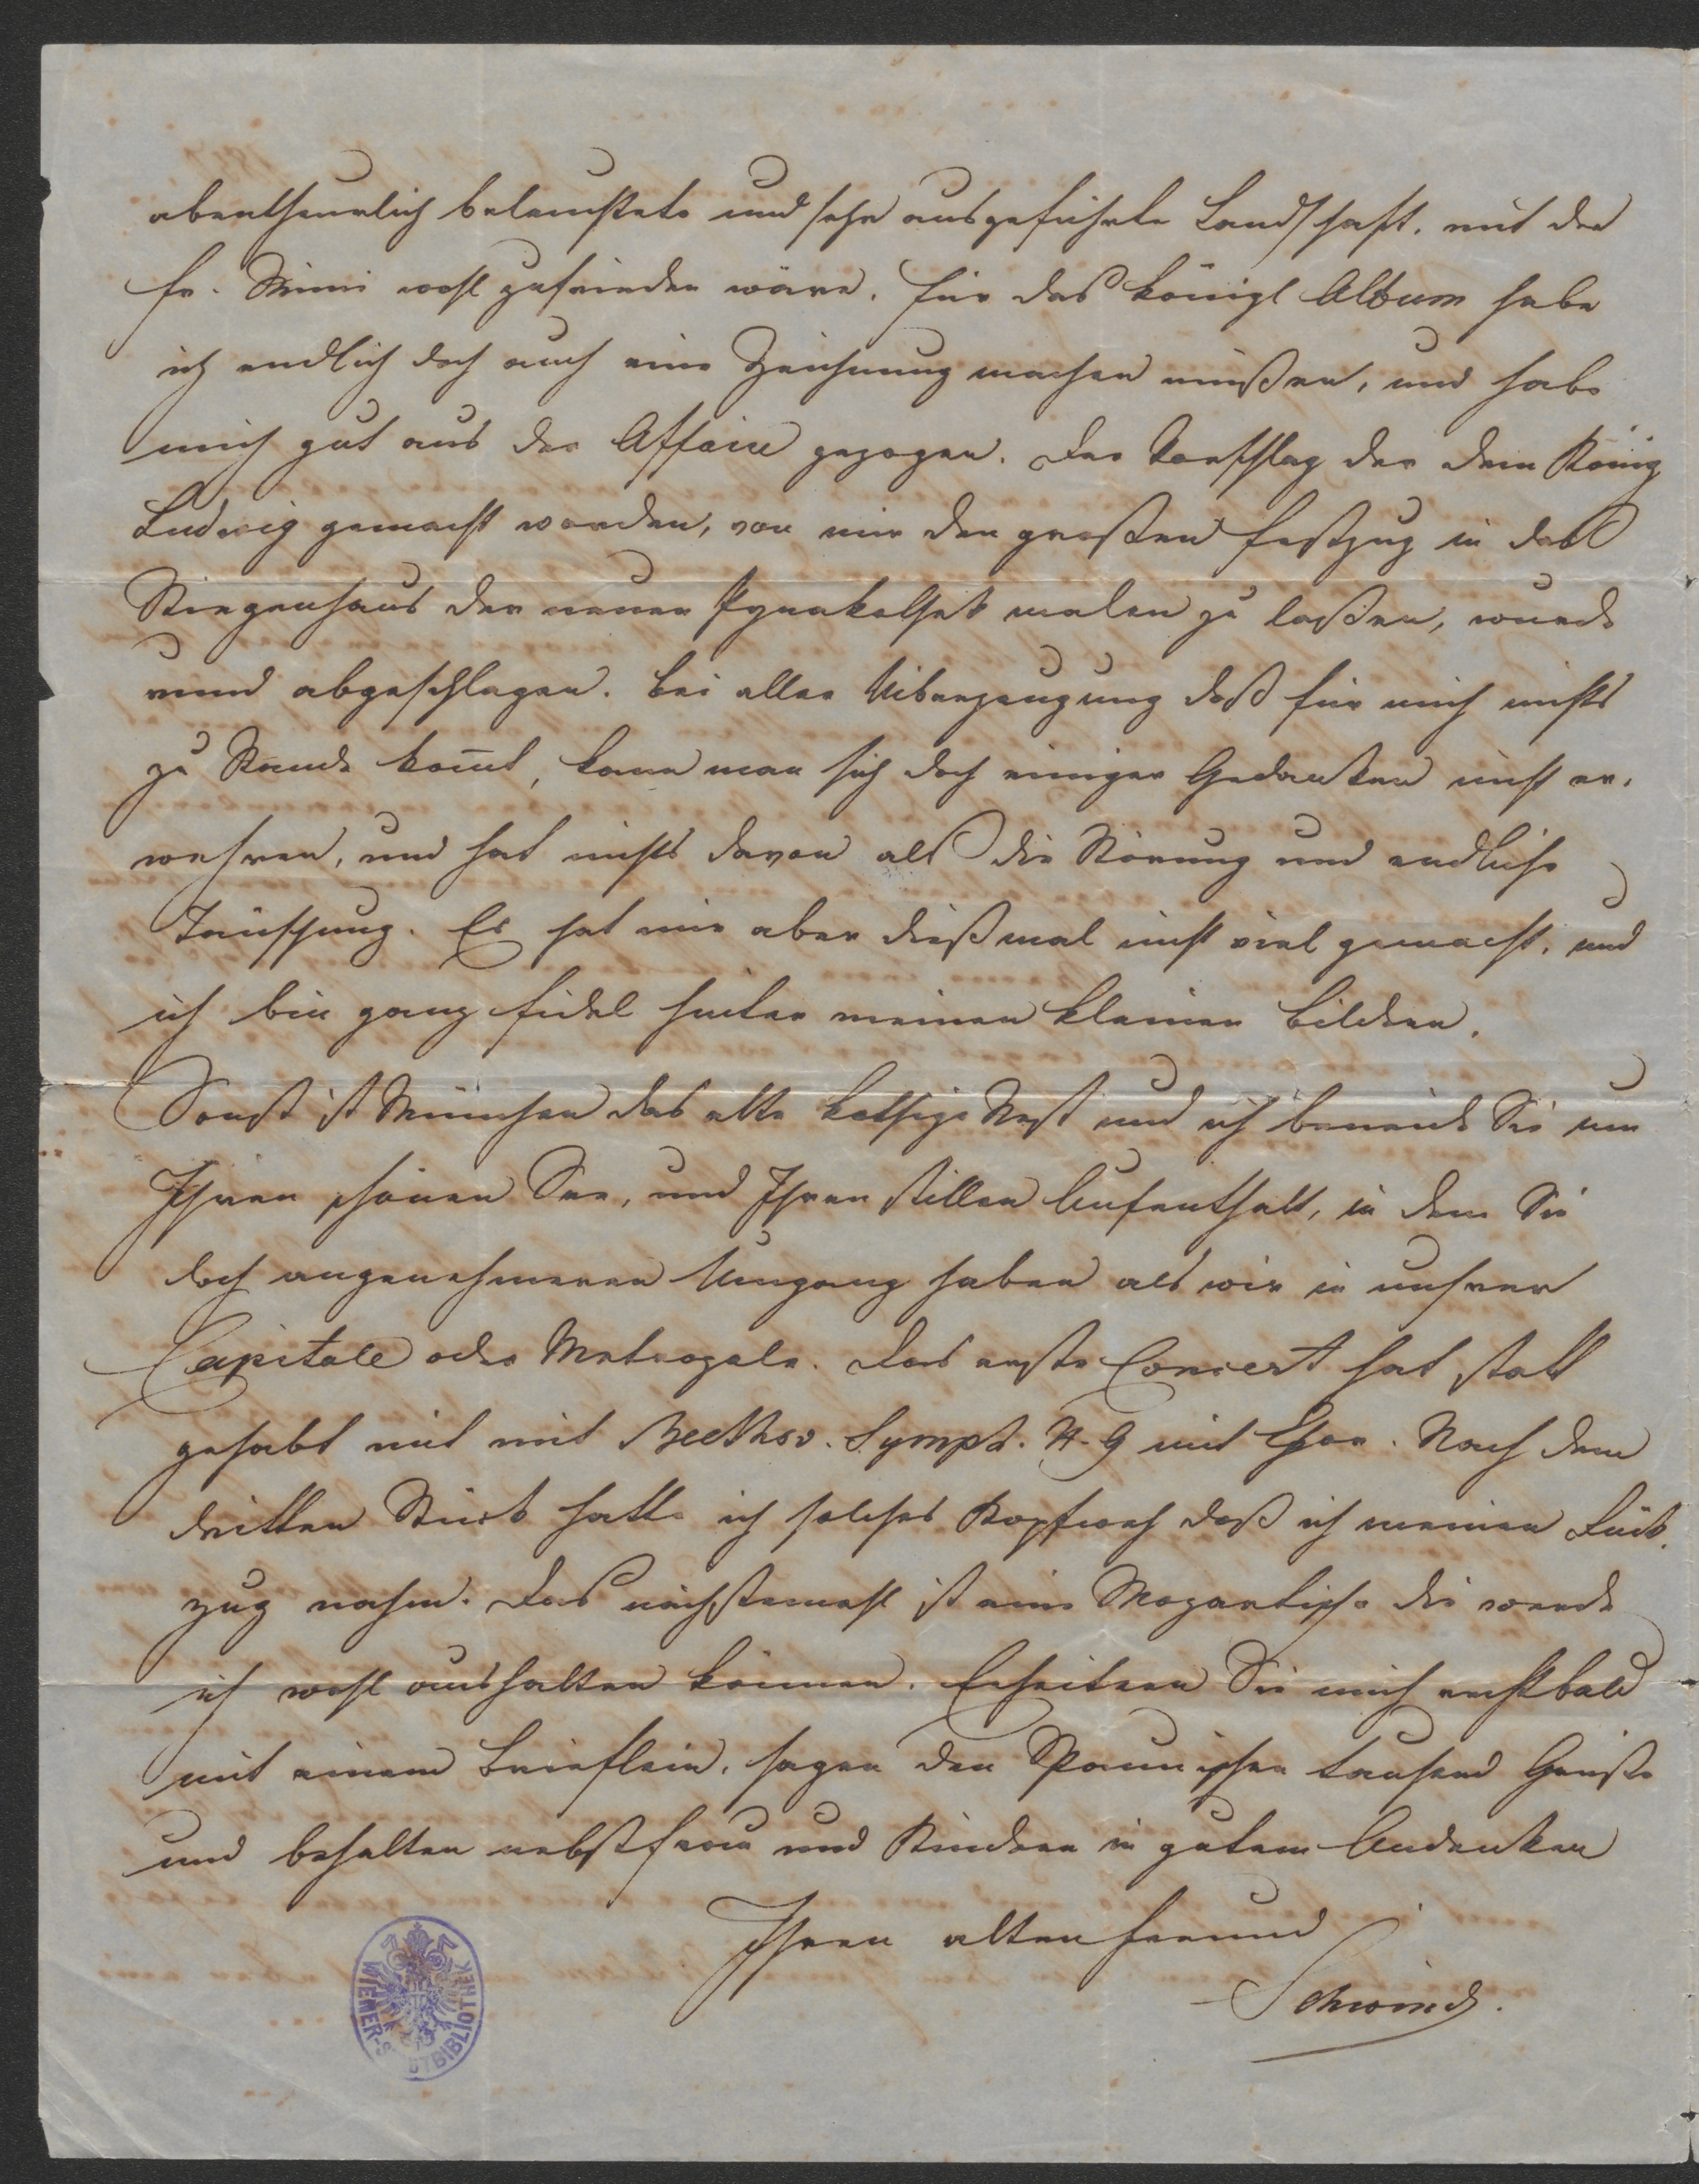 abentheuerlich beleuchtete und sehr ausgeführte Landschaft, mit der
Fr. Mimi wohl zufrieden wäre. Für das königl Album habe
ich endlich doch auch eine Zeichnung machen müßen, und habe
mich gut aus der Affaire gezogen. Der Vorschlag der dem König
Ludwig gemacht worden, von mir den großen Festzug in das
Stiegenhaus der neuen Pynakothek malen zu laßen, wurde
rund abgeschlagen. Bei aller Uiberzeugung daß für mich nichts
zu Stande kom̄t, kann man sich doch einiger Gedanken nicht er-
wehren, und hat nichts davon als die Störung und endliche
Täuschung. Es hat mir aber dießmal nicht viel gemacht, und
ich bin ganz fidel hinter meinen kleinen Bildern.
Sonst ist München das alte kothige Nest und ich beneide Sie um
Ihren schönen See, und Ihren stillen Aufenthalt, in dem Sie
doch angenehmeren Umgang haben als wir in unsrer
Capitale oder Metropole. Das erste Concert hat statt
gehabt mit mit Beethov. Symph. N. 9 mit Chor. Nach dem
dritten Stück hatte ich solches Kopfweh daß ich meinen Rück-
zug nahm. Das nächstemahl ist eine Mozartische die werde
ich wohl aushalten können. Erheitern Sie mich recht bald
mit einem Brieflein, sagen den Spaunischen tausend Grüße
und behalten nebst Frau und Kindern in gutem Andenken
Ihren alten Freund
Schwind.
WIENER-STADTBIBLIOTHEK